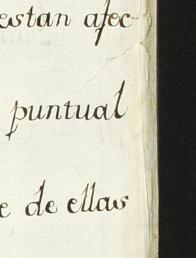 estan afec-
puntual
e de ellas